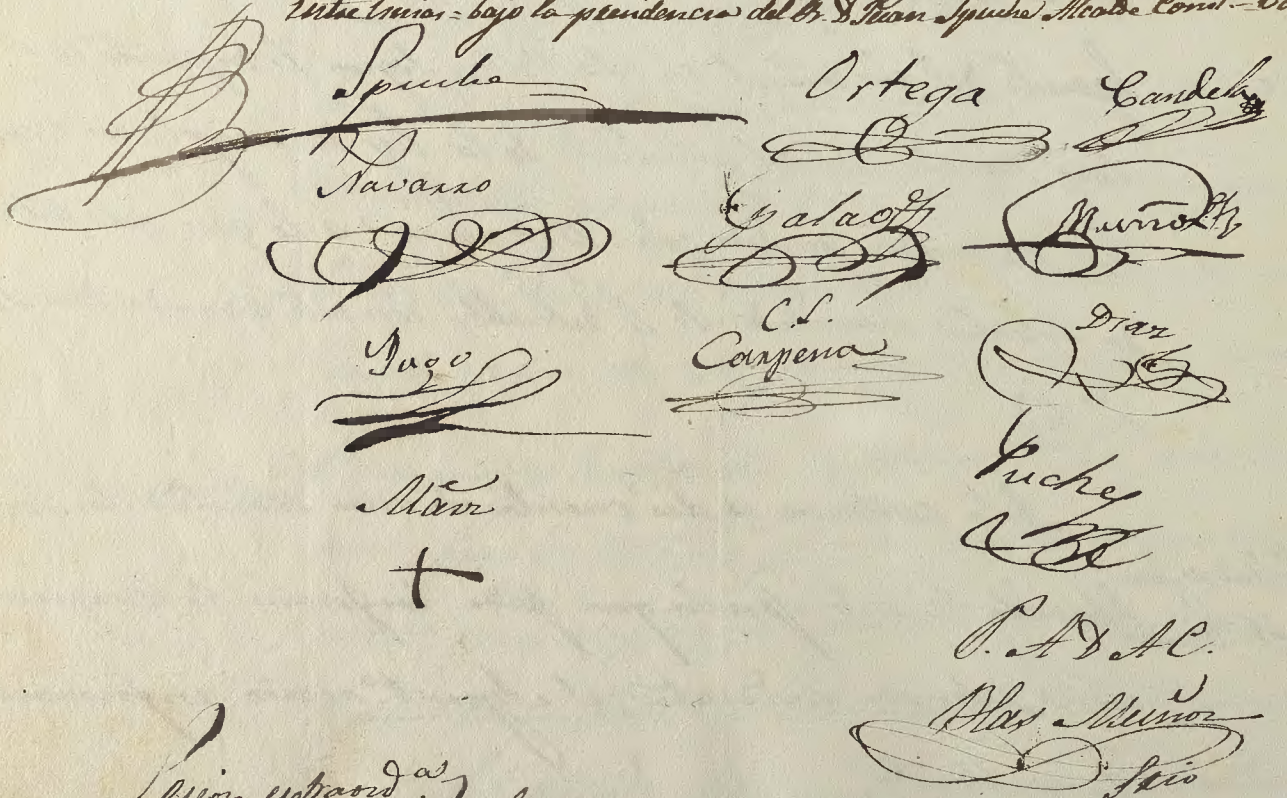 Entre lineas = bajo la presidencia del Sr. D. Juan Spuche Alcalde Const. =
Spuche Ortega Candela
Navarro Palao Muñoz
Yago C. S. Carpena Diaz
Puche
+
P. A. D. A. C.
Blas Muñoz
Srio
Sesion extraord.ª